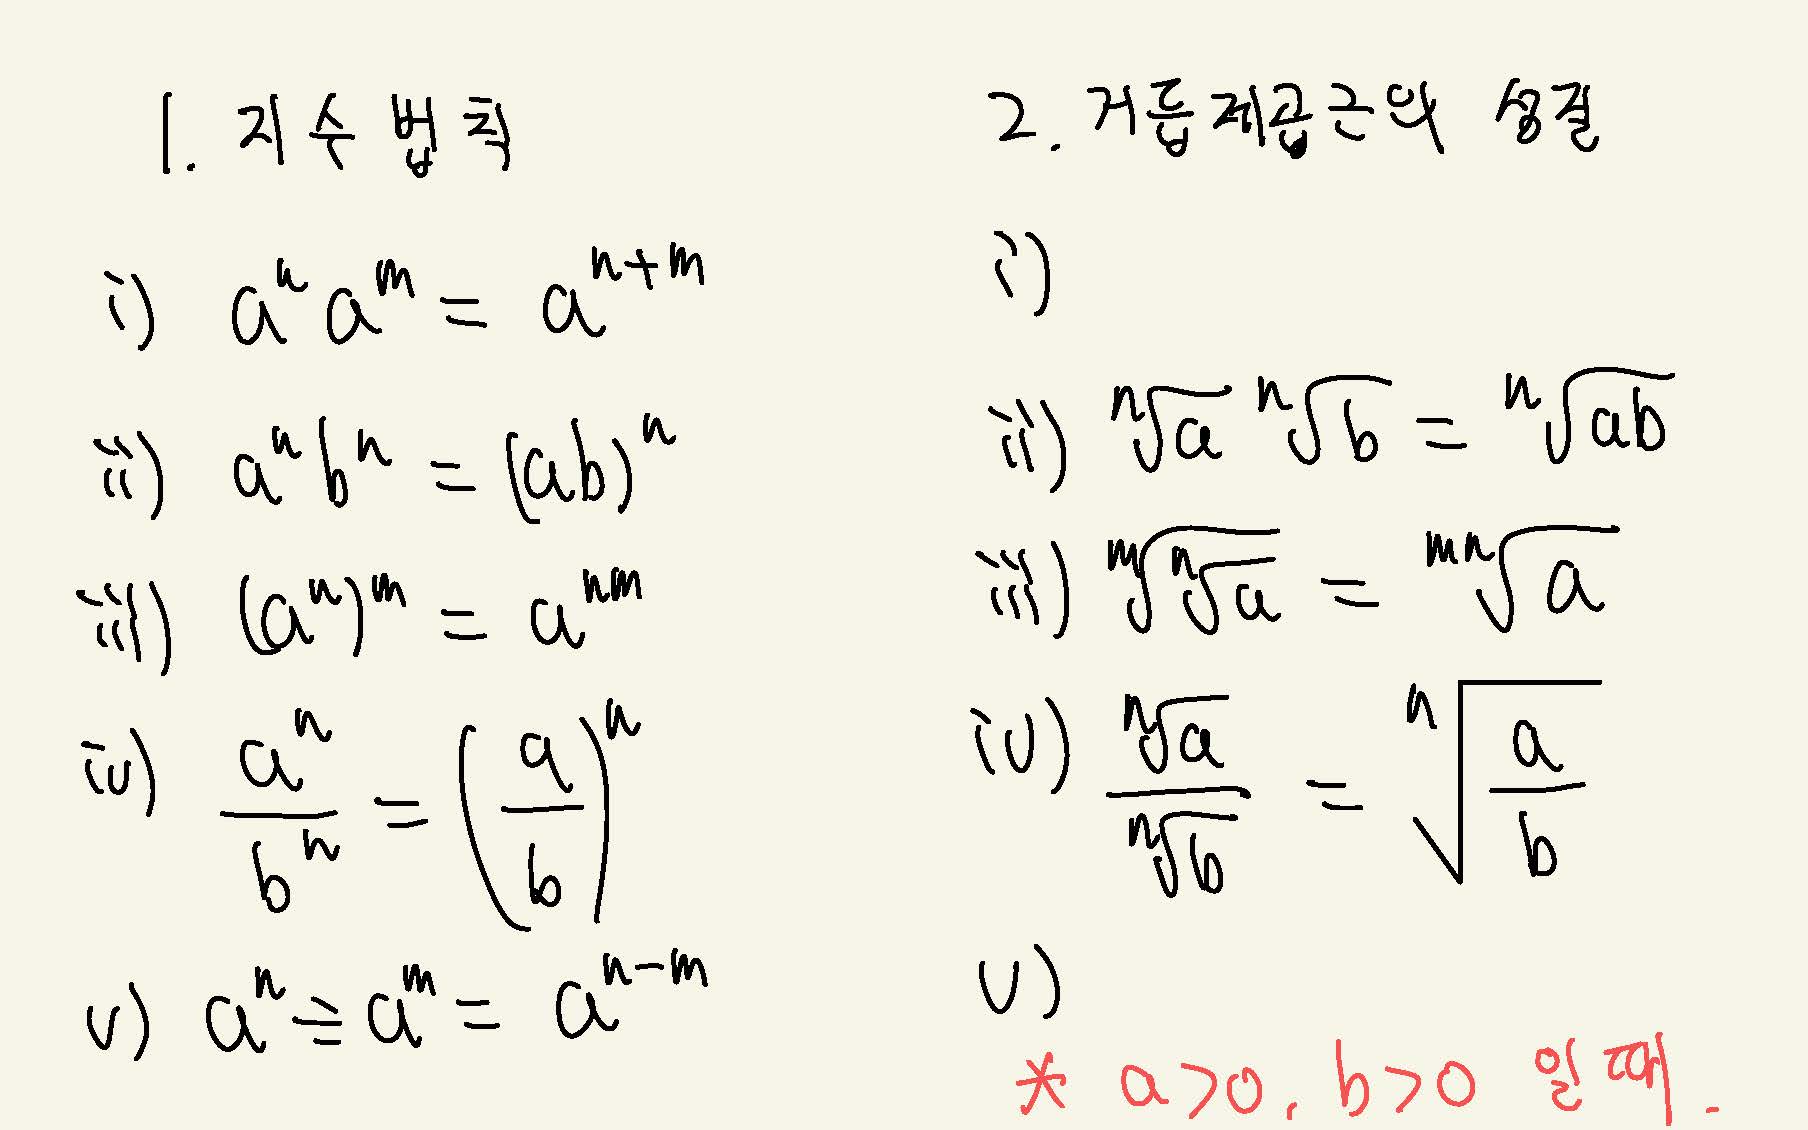 1. 지수 법칙
i) aⁿ aᵐ = aⁿ⁺ᵐ
ii) aⁿ bⁿ = (ab)ⁿ
iii) (aⁿ)ᵐ = aⁿᵐ
iv) aⁿ/bⁿ = (a/b)ⁿ
v) aⁿ ÷ aᵐ = aⁿ⁻ᵐ
2. 거듭제곱근의 성질
i)
ii) ⁿ√a ⁿ√b = ⁿ√ab
iii) ᵐ√(ⁿ√a) = ᵐⁿ√a
iv) ⁿ√a/ⁿ√b = ⁿ√(a/b)
v)
* a>0, b>0 일 때.